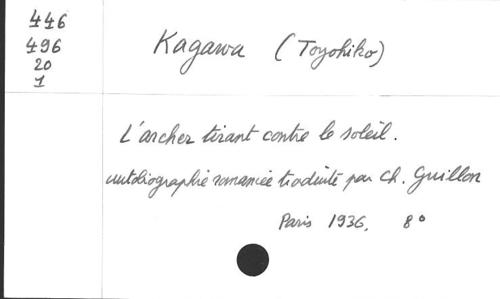 446
496
20
1
Kagawa (Toyohiko)
L'archer tirant contre le soleil.
autobiographie romancée traduite par Ch. Guillon
Paris 1936. 8°